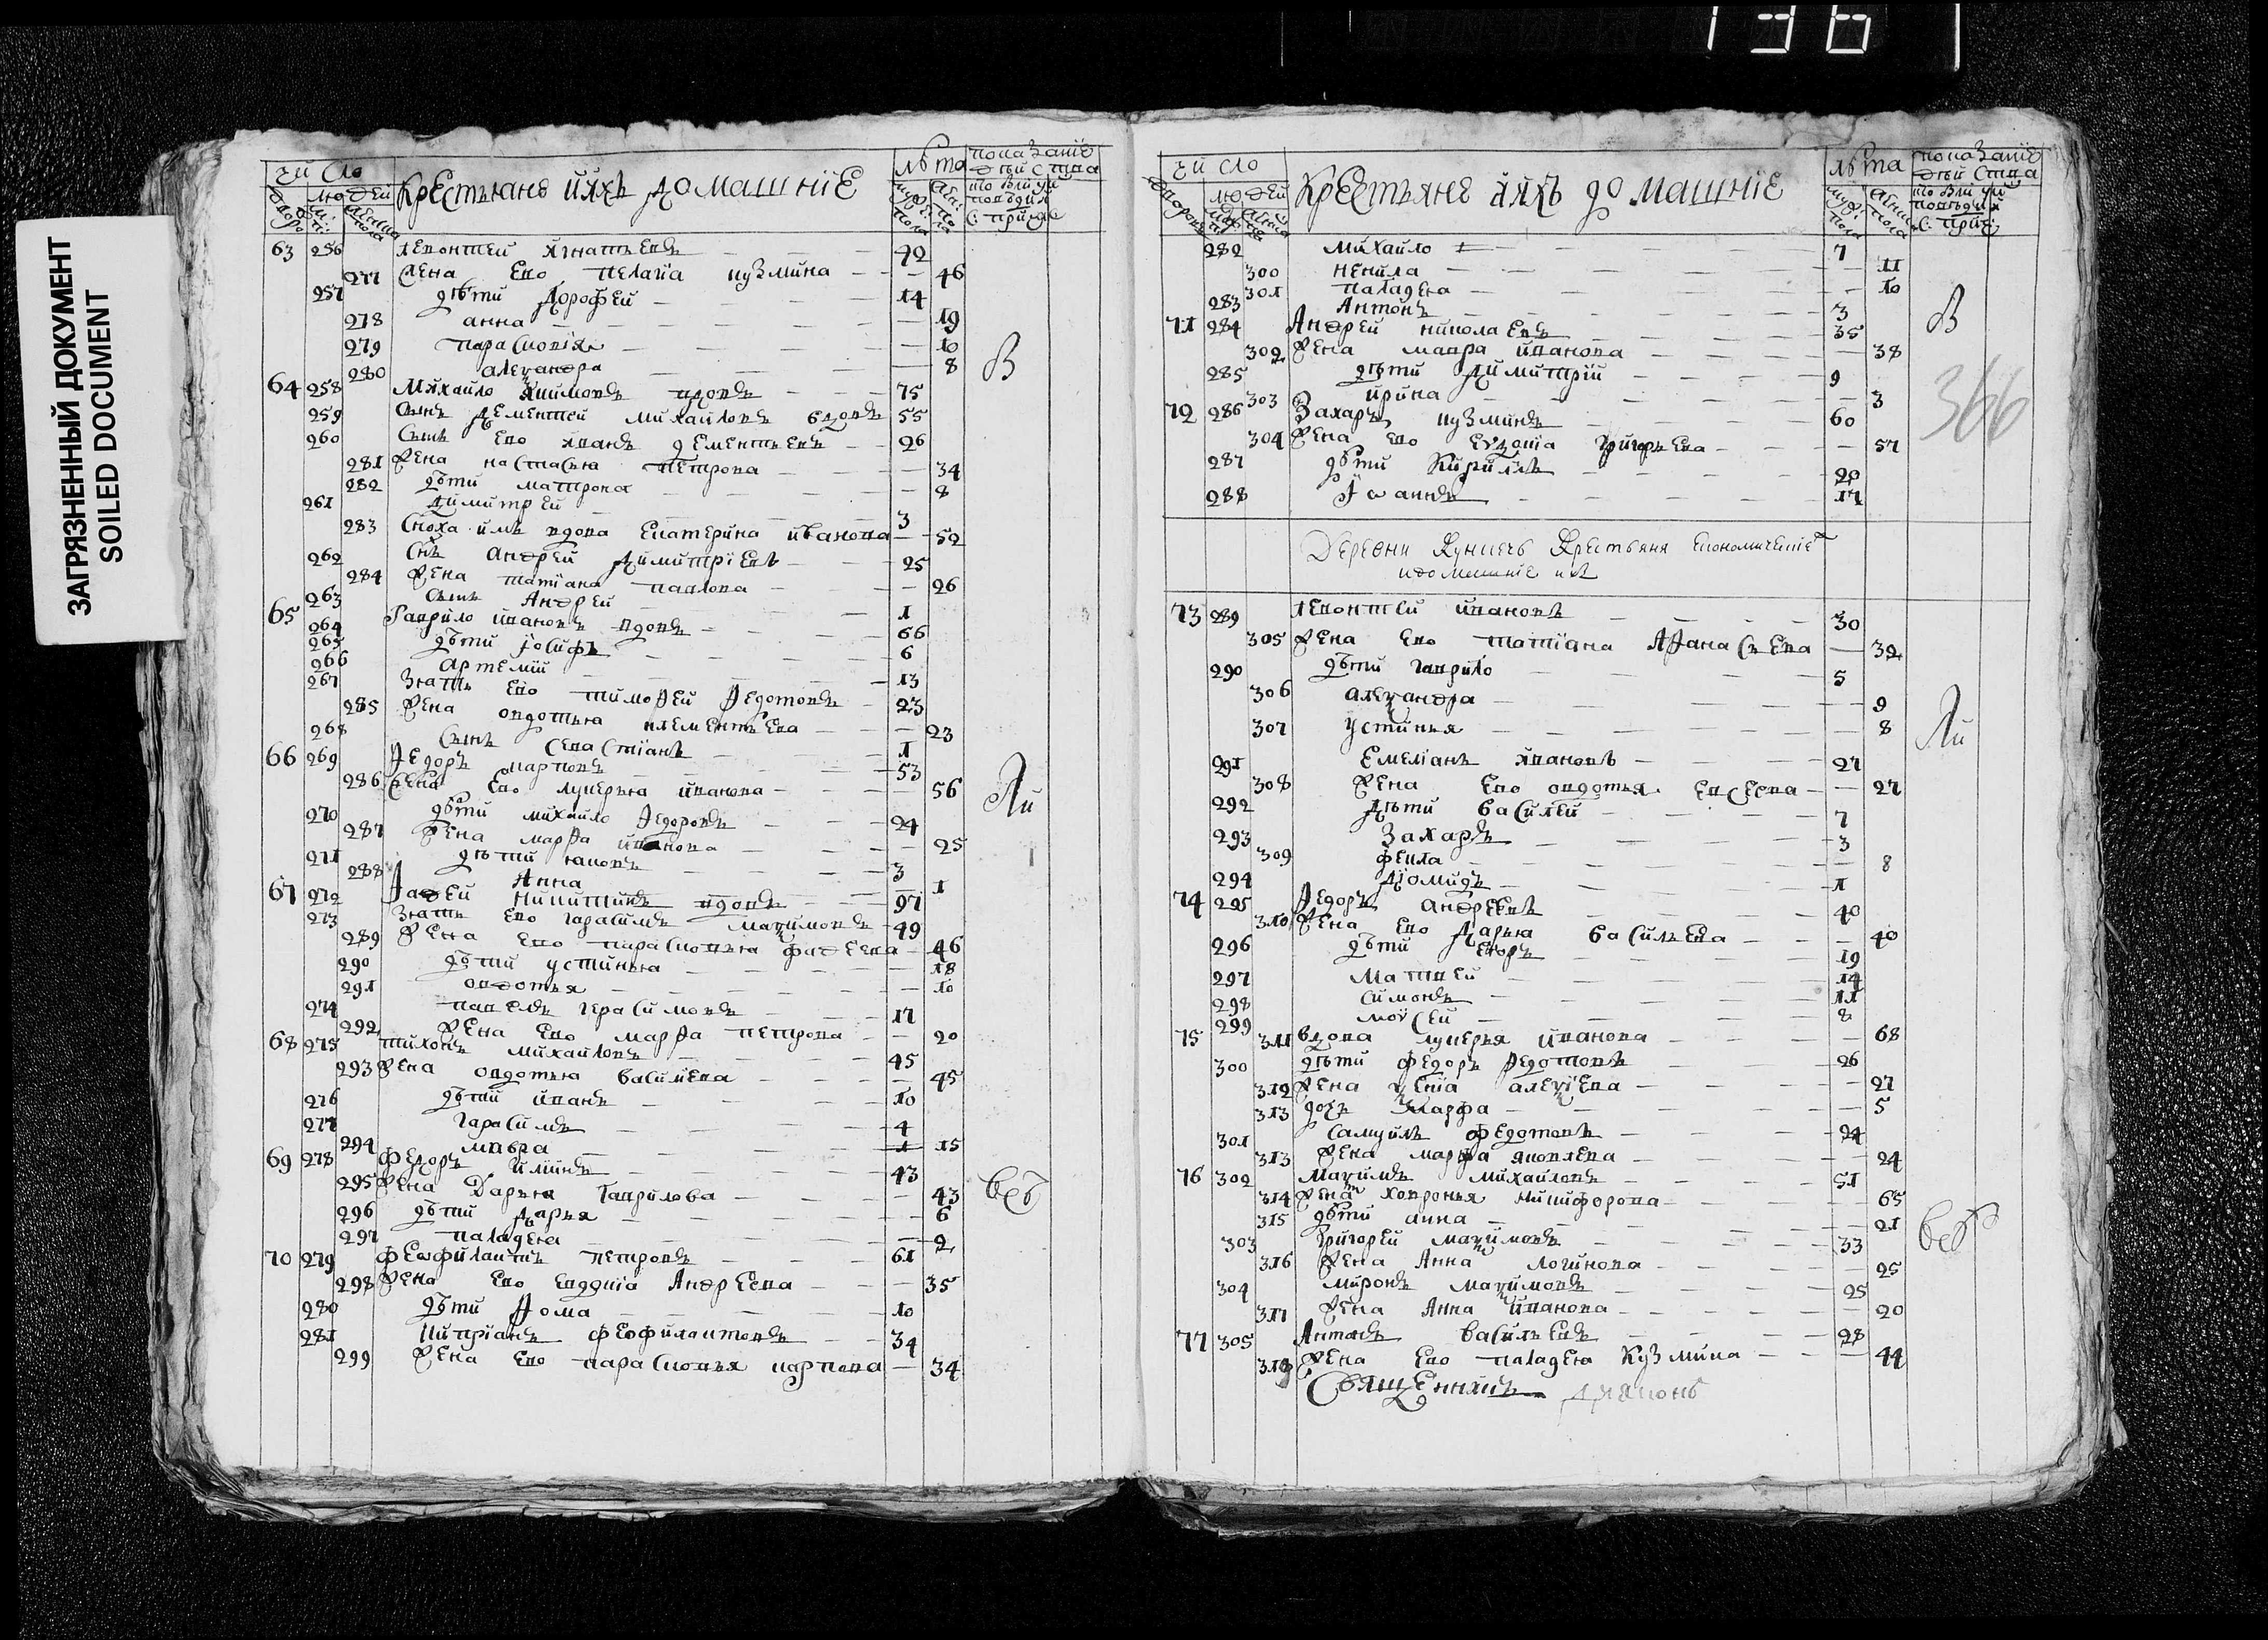 136
ЗАГРЯЗНЕННЫЙ ДОКУМЕНТ
SOILED DOCUMENT
число
людей
Крестьяне и ихъ домашніе
лѣта
показаніе
дѣйства
63 256 Леонтей Игнатьевъ 42
277 Жена его Пелагіа Кузмина 46
257 дѣти Дорофей 14
278 анна 19
279 парасковія 10
280 алеѯандра 8
В
64 258 Михайло вдовъ 75
259 Сынъ Дементей Михайловъ вдовъ 55
260 Сынъ его Иванъ Дементьевъ 26
281 Жена настасья Петрова 34
282 дѣти матрона 8
261 Димитрей 3
283 Сноха имъ вдова Екатерина иванова 52
262 Снъ Андрей Димитріевъ 25
284 Жена татіана павлова 26
263 Сынъ Андрей 1
65 264 Гаврило ивановъ вдовъ 66
265 дѣти Іосифъ 6
266 артемій 13
267 Зять его тимоѳей Ѳедотовъ 23
285 Жена овдотья клементьева 23
268 Сынъ Севастіанъ 1
66 269 Ѳедоръ марковъ 53
286 Жена его лукерья иванова 56
Ли
270 дѣти михайло Ѳедоровъ 24
287 Жена марѳа иванова 25
271 дѣти 3
288 Анна 1
67 272 Никитинъ вдовъ 97
273 Зять его гарасимъ маѯимовъ 49
289 Жена его парасковья фадеева 46
290 дѣти устинья 18
291 овдотья 10
274 павелъ герасимовъ 17
292 Жена его марѳа петрова 20
68 275 тихонъ михайловъ 45
293 Жена овдотья василиева 45
276 дѣти иванъ 10
277 гарасимъ 4
294 мавра 1 15
69 278 Федоръ илиинъ 43
295 Жена Дарья Гаврилова 43
вс
296 дѣти дарья 6
297 палагея 2
70 279 Феофилактъ петровъ 61
298 Жена его евдокіа Андреева 35
280 дѣти Ѳома 10
281 Кипріанъ феофилактовъ 34
299 Жена его парасковья карпова 34
число
людей
Крестьяне и ихъ домашніе
лѣта
показаніе
дѣйства
282 михайло 7
300 ненила 11
301 палагея 10
283 Антонъ 3
В
71 284 Андрей николаевъ 35
302 Жена мавра иванова 38
285 дѣти димитрій 9
303 ирина 3
366
72 286 Захаръ кузминъ 60
304 Жена его евдокіа Григорьева 57
287 дѣти Кирилъ 20
288 Іѡаннъ 17
Деревни Крестьяня економическіе
и домашніе ихъ
73 289 Леонтей ивановъ 30
305 Жена его татіана Аѳанасьева 32
290 дѣти гаврило 5
306 алеѯандра 9
307 устинья 8
Ли
291 Емеліанъ Ивановъ 27
308 Жена его овдотья евсеева 27
292 дѣти василей 7
293 Захаръ 3
309 фекла 8
294 Діомидъ 1
74 295 Ѳедоръ андреевъ 40
310 Жена его Дарья васильева 40
296 дѣти егоръ 19
297 матвей 14
298 симонъ 11
299 моѵсей 8
75 311 вдова лукерья иванова 68
300 дѣти федоръ Ѳедотовъ 26
312 Жена ѯеніа алеѯіева 27
313 дочь марфа 5
301 самуилъ федотовъ 24
313 Жена марфа яковлева 24
76 302 маѯимъ михайловъ 51
314 Жена ховронья никифорова 65
315 дѣти анна 21
вс
303 григорей маѯимовъ 33
316 Жена Анна логинова 25
304 миронъ маѯимовъ 25
317 Жена Анна иванова 20
77 305 Антонъ васильевъ 28
318 Жена его палагея Кузмина 44
Священникъ